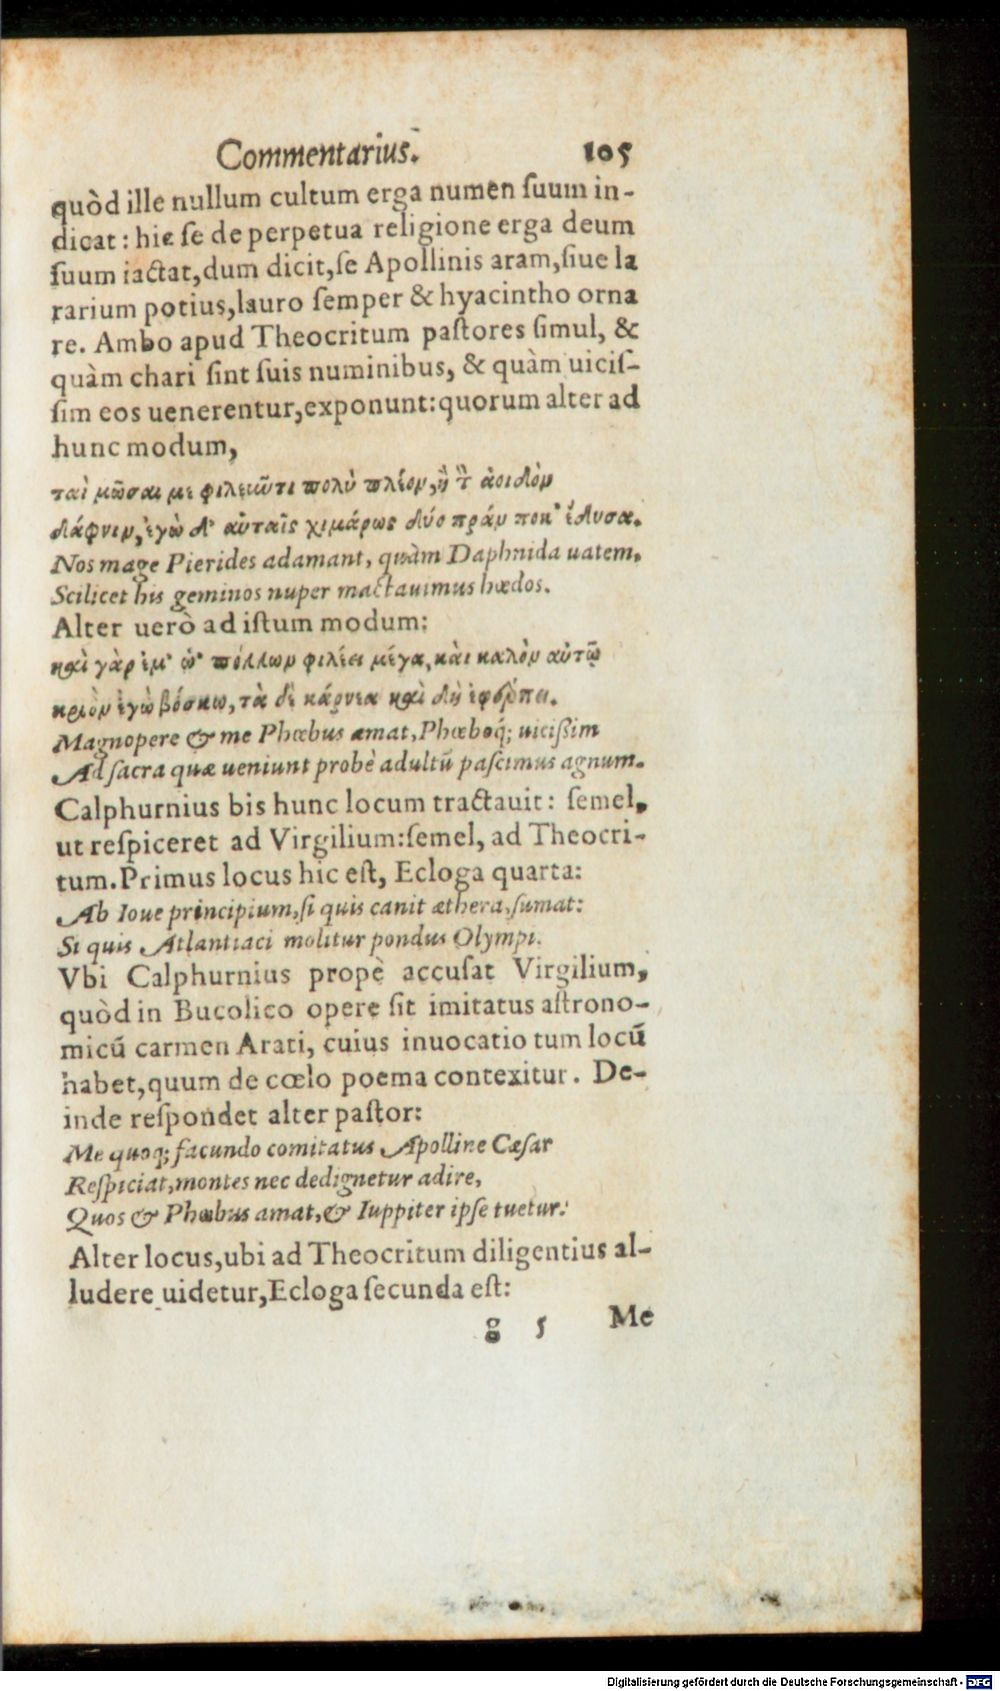 Commentarius. 105
quòd ille nullum cultum erga numen ſuum in-
dicat: hic ſe de perpetua religione erga deum
ſuum iactat, dum dicit, ſe Apollinis aram, ſiue la
rarium potius, lauro ſemper & hyacintho orna
re. Ambo apud Theocritum paſtores ſimul, &
quàm chari ſint ſuis numinibus, & quàm uiciſ-
ſim eos uenerentur, exponunt: quorum alter ad
hunc modum,
ταὶ μῶσαι με φιλεῦντι πολὺ πλέον, ἢ τ̀ ἀοιδὸν
δάφνιν, ἐγὼ δ' αὐταῖς χιμάρως δύο πράν ποκ' ἔδυσα.
Nos mage Pierides adamant, quàm Daphnida uatem.
Scilicet his geminos nuper mactauimus hœdos.
Alter uerò ad iſtum modum:
καὶ γὰρ ἐμ' ὡ' πόλλων φιλέει μέγα, κὰι καλὸν αὐτῷ
κριὸν ἐγὼ βόσκω, τὰ δὲ κάρνεα καὶ δὴ ἐφέρπει.
Magnopere & me Phœbus amat, Phœboq́; uicißim
Ad ſacra quæ ueniunt probè adultū paſcimus agnum.
Calphurnius bis hunc locum tractauit: ſemel,
ut reſpiceret ad Virgilium: ſemel, ad Theocri-
tum. Primus locus hic eſt, Ecloga quarta:
Ab Ioue principium, ſi quis canit æthera, ſumat:
Si quis Atlantiaci molitur pondus Olympi.
Vbi Calphurnius propè accuſat Virgilium,
quòd in Bucolico opere ſit imitatus aſtrono-
micū carmen Arati, cuius inuocatio tum locū
habet, quum de cœlo poema contexitur. De-
inde reſpondet alter paſtor:
Me quoq; facundo comitatus Apolline Cæſar
Reſpiciat, montes nec dedignetur adire,
Quos & Phœbus amat, & Iuppiter ipſe tuetur.
Alter locus, ubi ad Theocritum diligentius al-
ludere uidetur, Ecloga ſecunda eſt:
g 5 Me
Digitalisierung gefördert durch die Deutsche Forschungsgemeinschaft - DFG